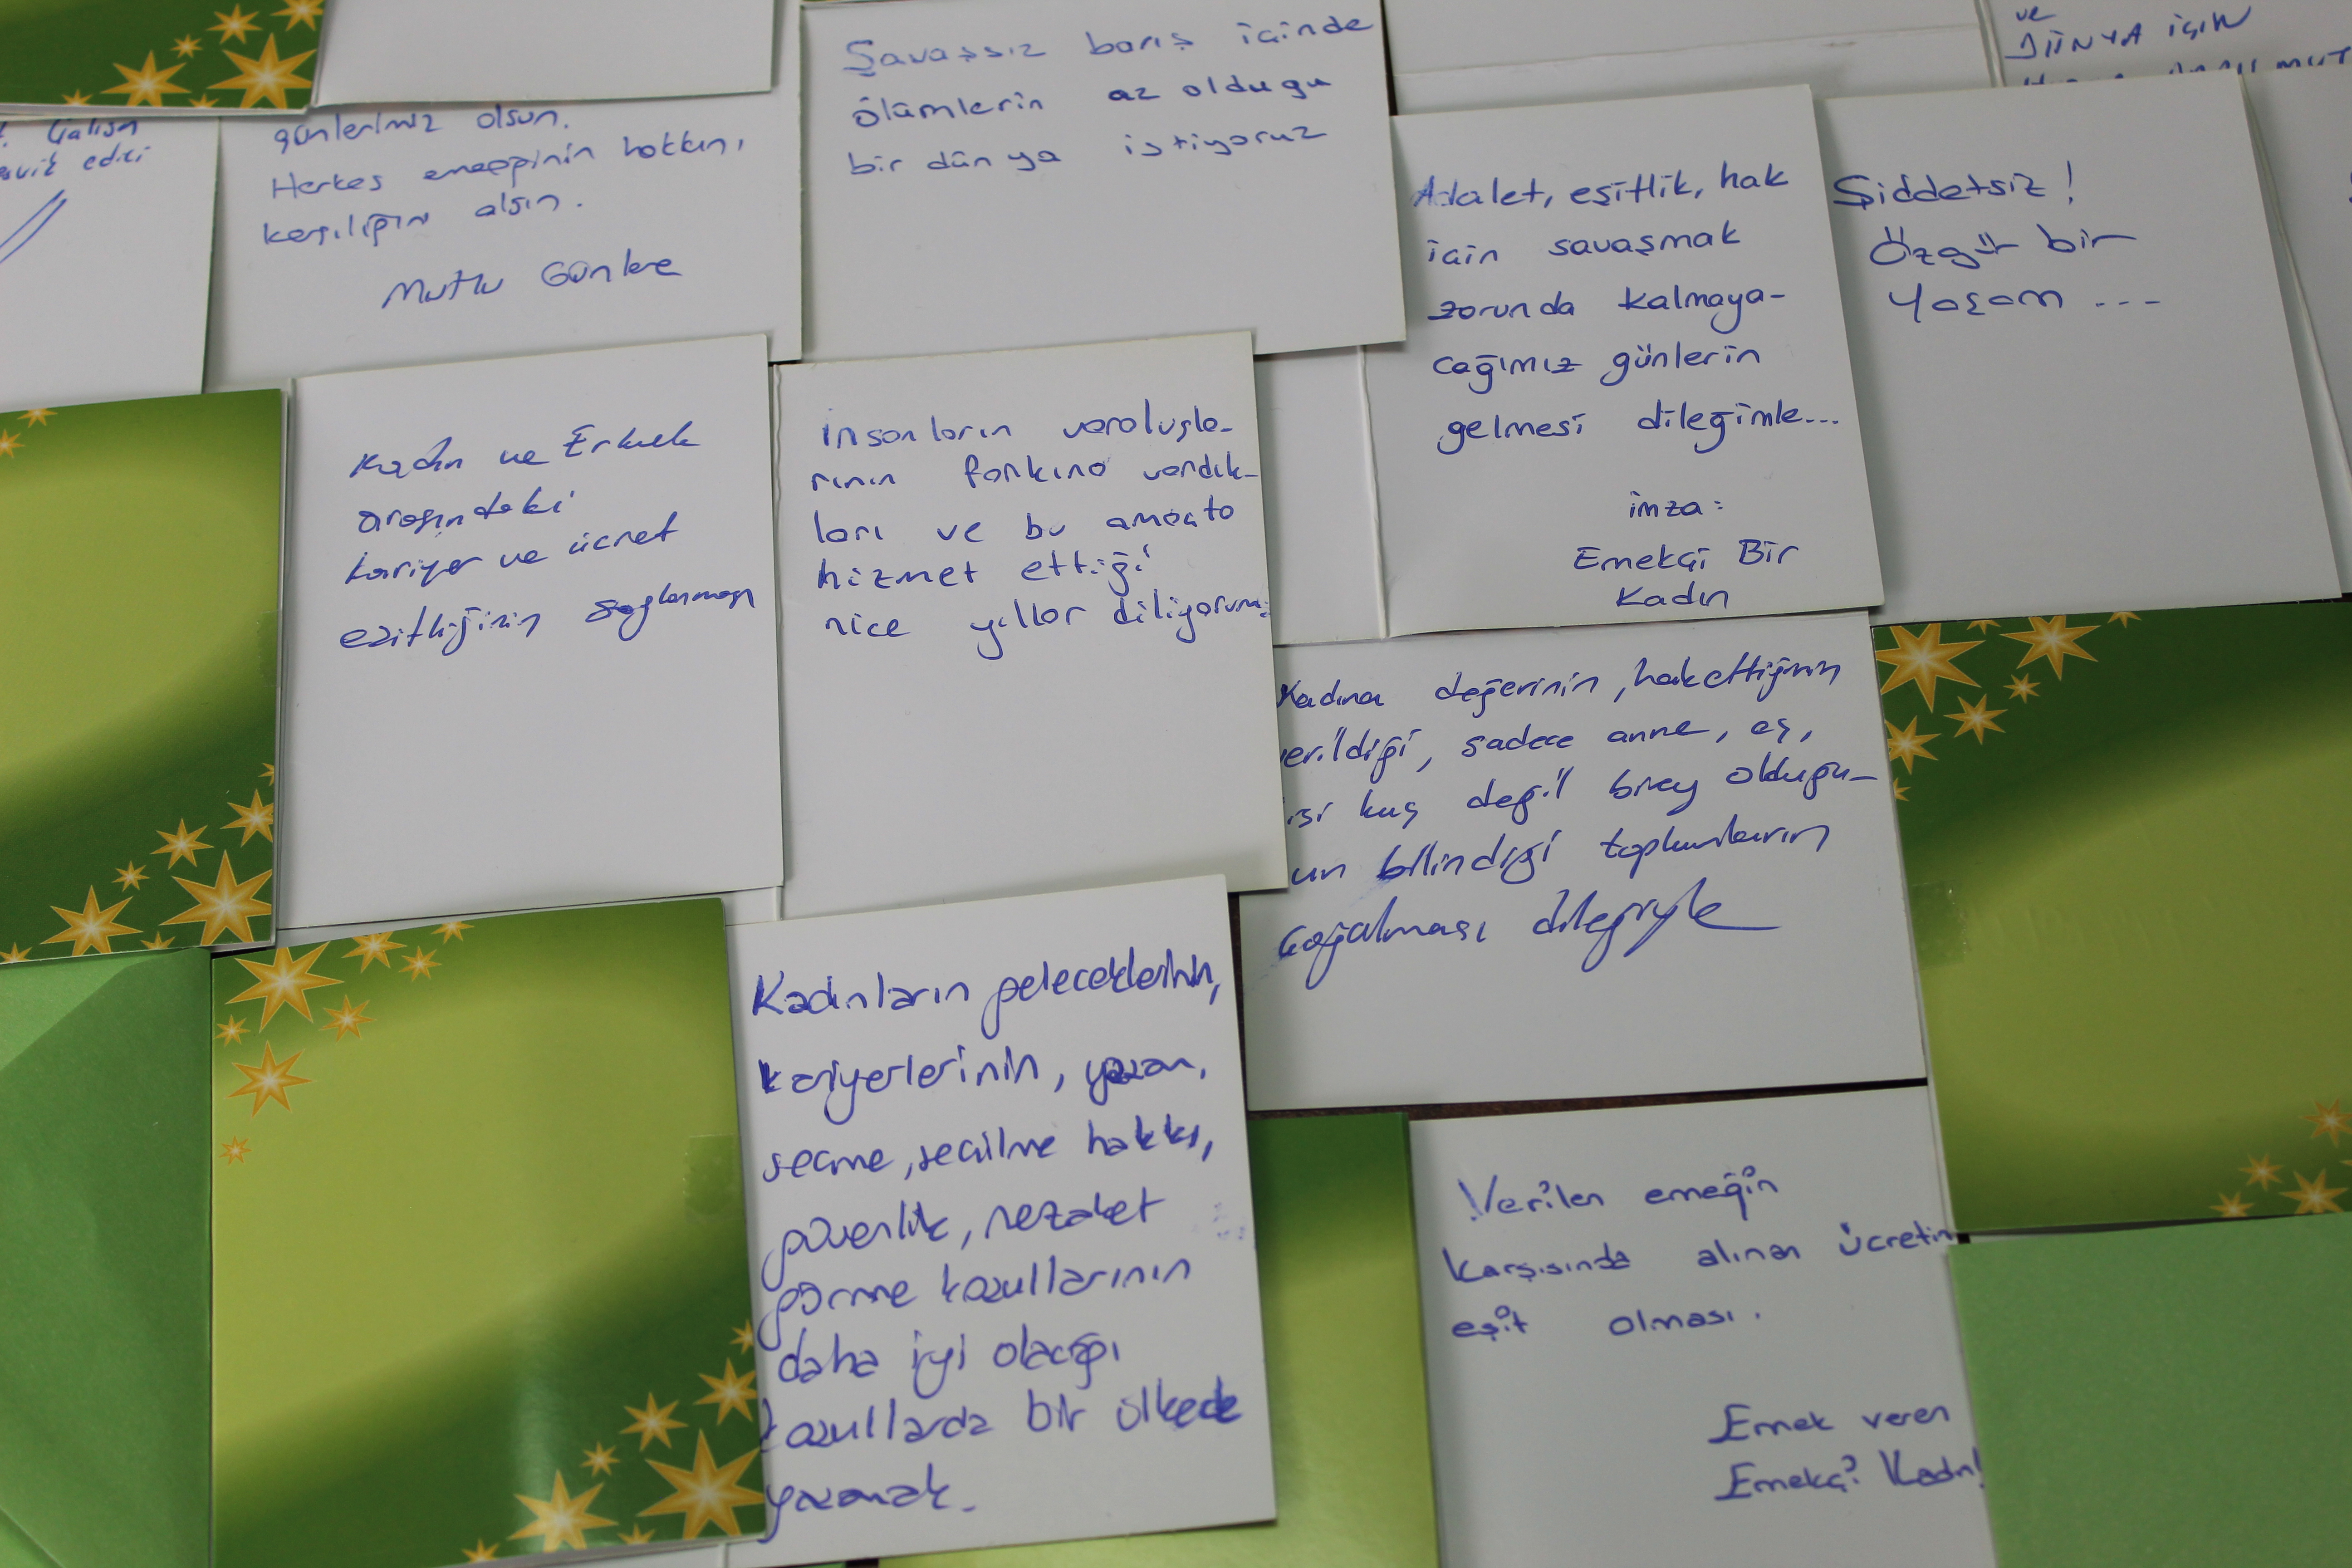 Çalışın
edici
günlerimiz olsun.
Herkes emeğinin hakkını,
karşılığını alsın.
Mutlu Günlere
Savaşsız barış içinde
ölümlerin az olduğu
bir dünya istiyoruz
ve
DÜNYA İÇİN
Adalet, eşitlik, hak
için savaşmak
zorunda kalmaya-
cağımız günlerin
gelmesi dileğimle...
imza:
Emekçi Bir
Kadın
Şiddetsiz!
Özgür bir
Yaşam ---
Kadın ve Erkek
arasındaki
kariyer ve ücret
eşitliğinin sağlanması
insanların varoluşla-
rının farkına vardık-
ları ve bu amaçta
hizmet ettiği
nice yıllar diliyorum.
Kadına değerinin, hakettiğinin
verildiği, sadece anne, eş,
kuş değil birey olduğu-
un bilindiği toplumların
çoğalması dileğiyle
Kadınların geleceklerinin,
kariyerlerinin, yaşam,
seçme, seçilme hakkı,
güvenlik, nezaket
görme koşullarının
daha iyi olacağı
koşullarda bir ülkede
yaşamak.
Verilen emeğin
karşısında alınan ücretin
eşit olması.
Emek veren
Emekçi Kadın!